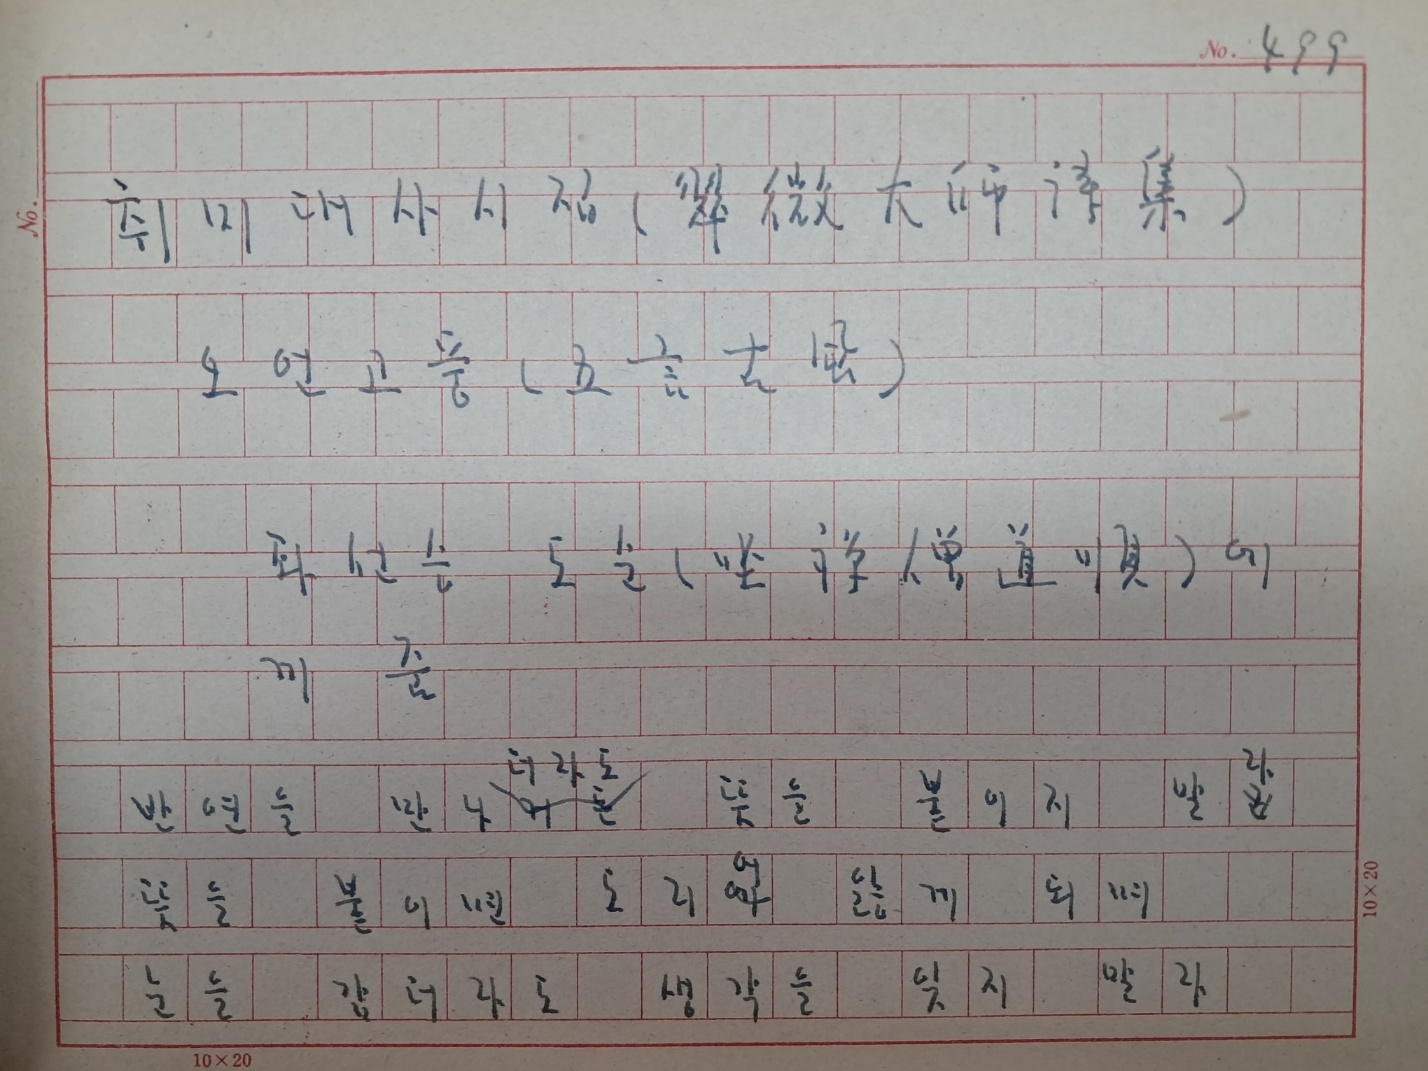 No. 499
No.
취미대사시집(翠微大師詩集)
오언고풍(五言古風)
좌선승 도일(坐禪僧道一)에
게 줌
더라도 라
반연을 만나 뜻을 붙이지 말
뜻을 붙이면 도리 앓게 되며
눈을 감더라도 생각을 잊지 말라
10×20
10×20